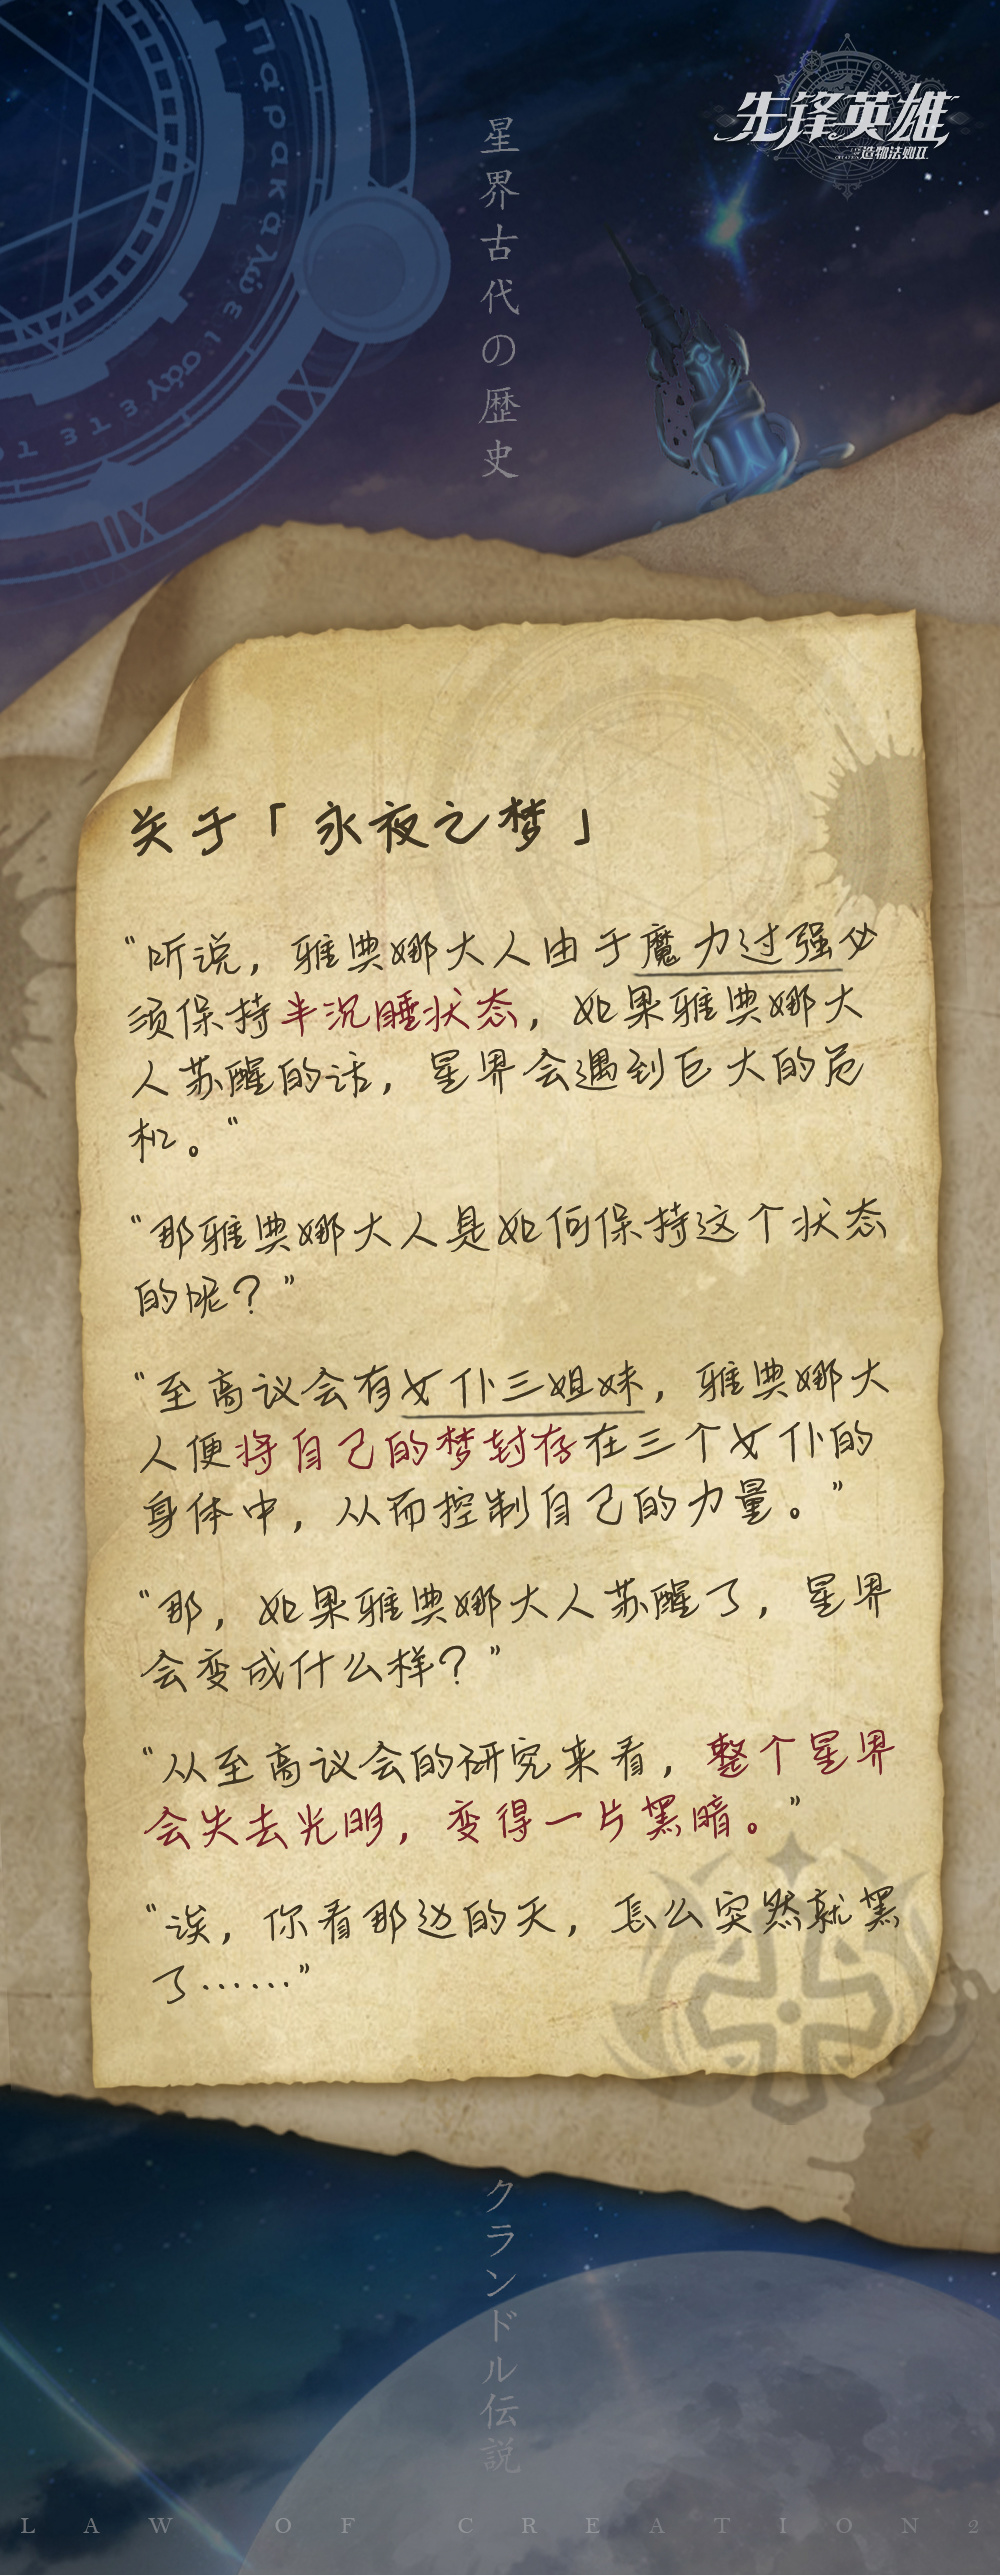 先锋英雄
造物法则II
星界古代の歴史
关于「永夜之梦」
“听说，雅典娜大人由于魔力过强必
须保持半沉睡状态，如果雅典娜大
人苏醒的话，星界会遇到巨大的危
机。“
“那雅典娜大人是如何保持这个状态
的呢？”
“至高议会有女仆三姐妹，雅典娜大
人便将自己的梦封存在三个女仆的
身体中，从而控制自己的力量。”
“那，如果雅典娜大人苏醒了，星界
会变成什么样？”
“从至高议会的研究来看，整个星界
会失去光明，变得一片黑暗。”
“诶，你看那边的天，怎么突然就黑
了……”
クランドル伝説
LAW OF CREATION2